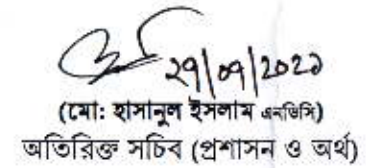 ২৭/০৭/২০২১
(মো: হাসানুল ইসলাম এনডিসি)
অতিরিক্ত সচিব (প্রশাসন ও অর্থ)